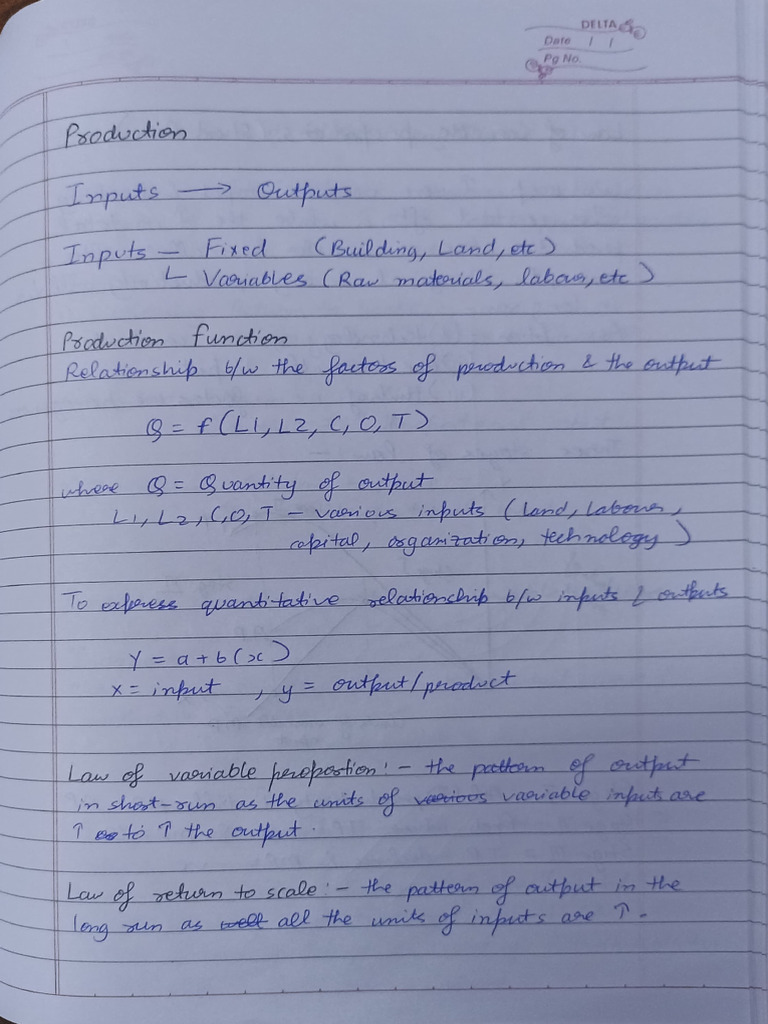 DELTA
Date / /
Pg No.
Production
Inputs → Outputs
Inputs — Fixed (Building, Land, etc)
└ Variables (Raw materials, labour, etc)
Production function
Relationship b/w the factors of production & the output
Q = f(L1, L2, C, O, T)
where Q = Quantity of output
L1, L2, C, O, T – various inputs (land, labour,
capital, organization, technology)
To express quantitative relationship b/w inputs & outputs
Y = a + b(x)
x = input , y = output/product
Law of variable proportion:- the pattern of output
in short-run as the units of various variable inputs are
↑ to ↑ the output.
Law of return to scale:- the pattern of output in the
long run as well all the units of inputs are ↑.